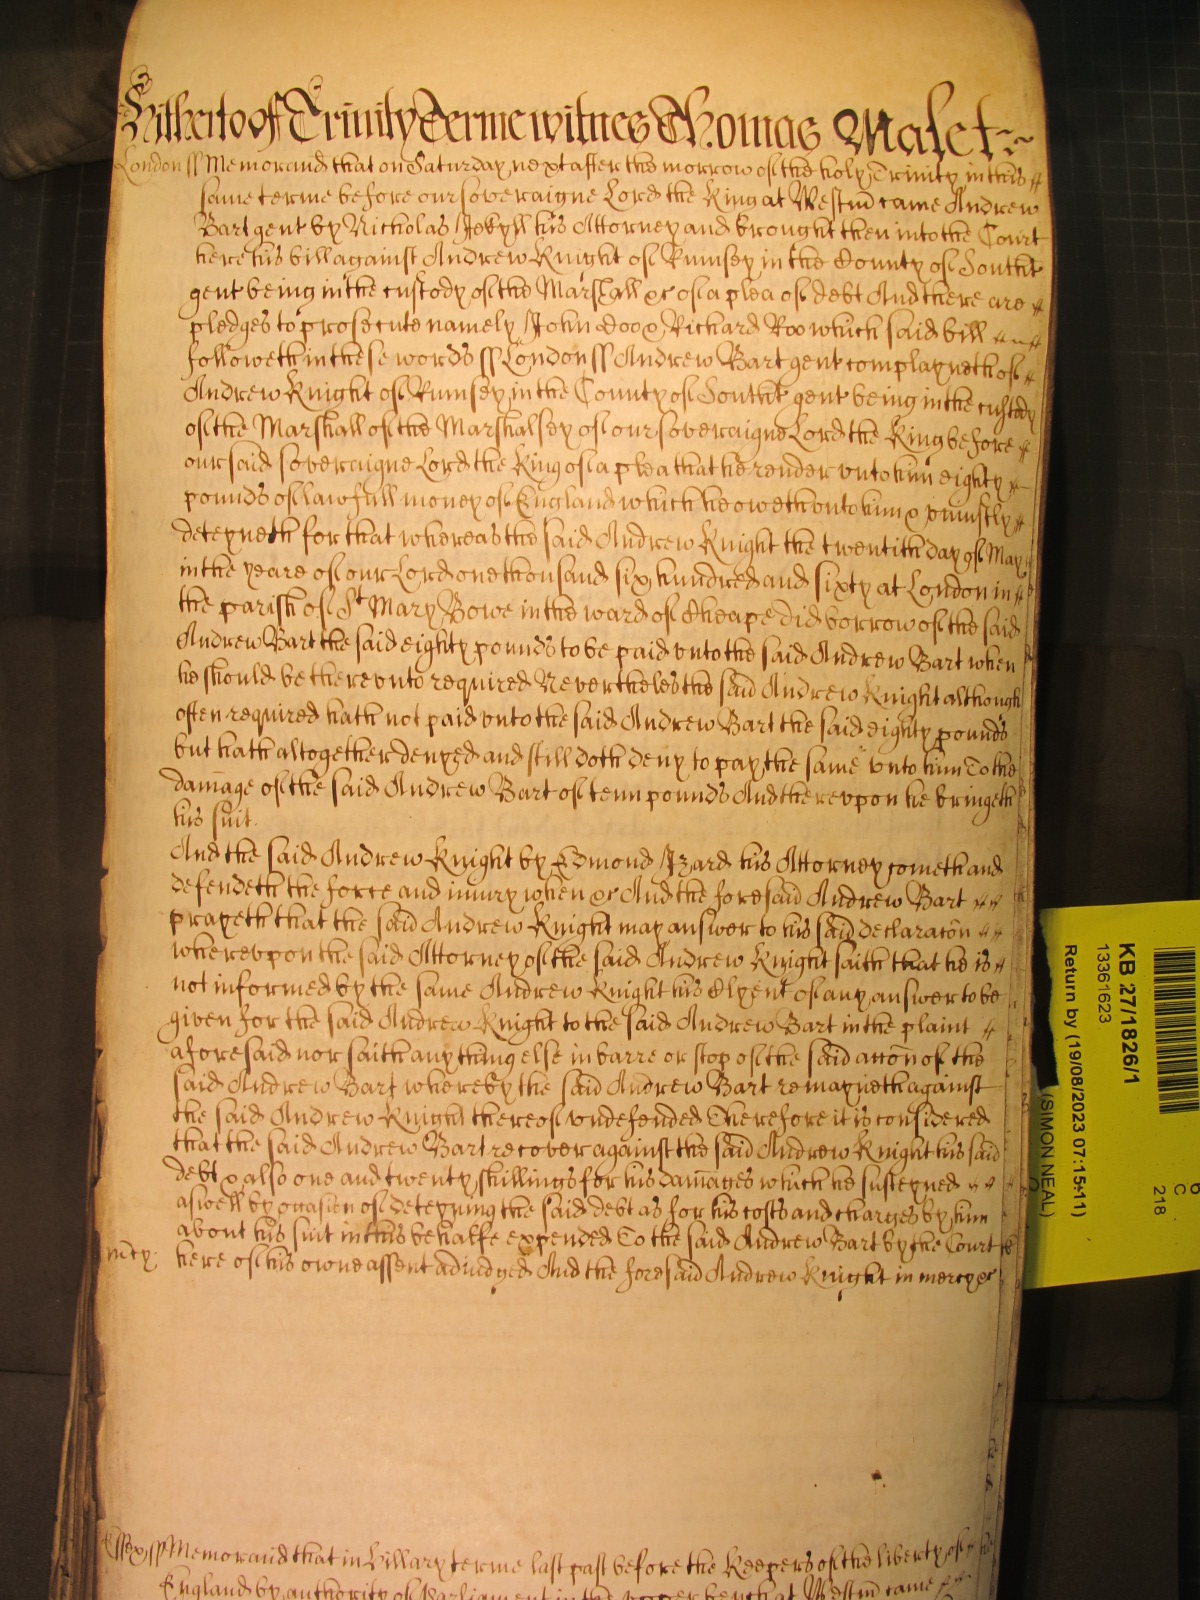 Hitherto of Trinity Terme witnes Thomas Malet
London ss Memorand that on Saturday next after the morrow of the holy Trinity in this
same terme before our soveraigne Lord the King at Westm came Andrew
Bart gent by Nicholas Jekyll his Attorney and brought then into the Court
here his bill against Andrew Knight of Rumsey in the County of Southt
gent being in the custody of the Marshall &c of a plea of debt And there are
pledges to prosecute namely John Doo & Richard Roo which said bill
followeth in these words ss London ss Andrew Bart gent complayneth of
Andrew Knight of Rumsey in the County of Southt gent being in the custody
of the Marshall of the Marshalsey of our soveraigne Lord the King before
our said soveraigne Lord the King of a plea that he render unto him eighty
pounds of lawfull money of England which he oweth unto him & uniustly
deteyneth for that whereas the said Andrew Knight the twentith day of May
in the yeare of our Lord one thousand six hundred and sixty at London in
the parish of St Mary Bowe in the ward of Cheape did borrow of the said
Andrew Bart the said eighty pounds to be paid unto the said Andrew Bart when
he should be thereunto required Nevertheles the said Andrew Knight although
often required hath not paid unto the said Andrew Bart the said eighty pounds
but hath altogether denyed and still doth deny to pay the same unto him To the
damage of the said Andrew Bart of tenn pounds And thereupon he bringeth
his suit.
And the said Andrew Knight by Edmond Izard his Attorney cometh and
defendeth the force and iniury when &c And the foresaid Andrew Bart
prayeth that the said Andrew Knight may answer to his said declaracon
whereupon the said Attorney of the said Andrew Knight saith that he is
not informed by the same Andrew Knight his Clyent of any answer to be
given for the said Andrew Knight to the said Andrew Bart in the plaint
aforesaid nor saith any thing else in barre or stop of the said accon of the
said Andrew Bart whereby the said Andrew Bart remayneth against
the said Andrew Knight thereof undefended Therefore it is considered
that the said Andrew Bart recover against the said Andrew Knight his said
debt & also one and twenty shillings for his damages which he susteyned
aswell by occasion of deteyning the said debt as for his costs and charges by him
about his suit in this behalfe expended To the said Andrew Bart by the Court
mcy. here of his owne assent adiudged And the foresaid Andrew Knight in mercy &c
Essex ss Memorand that in Hillary terme last past before the Keepers of the liberty of
England by authority of Parliament in the upper bench at Westm came
KB 27/1826/1
13361623
Return by (19/08/2023 07:15:11)
(SIMON NEAL)
C
218